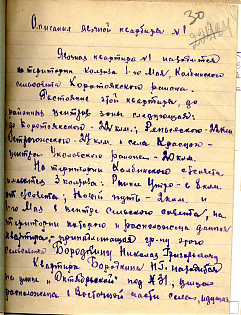 30
Описание явочной квартиры №1
Явочная квартира №1 находится
на территории колхоза 1-ое Мая, Колбинского
сельсовета Коротоякского района.
Расстояние этой квартиры до
районных центров зоны следующая:
до Коротоякского - 22 клм; Репьевского - 22 клм
Острогожского - 27 клм и села Красное -
центра Уколовского района - 20 клм.
На территории Колбинского с/совета
имеются 3 колхоза: Утро - в 2 клм.
от с/совета; Новый путь - 2 клм. и
1-ое Мая в центре сельского совета, на
территории которого и расположена данная
квартира, принадлежащая гр-ну этого
селения Бородкину Николаю Григорьевичу
Квартира Бородкина Н.Г. находится
на улице "Октябрьской" под №31, улица
расположена в Восточной части села, идущая